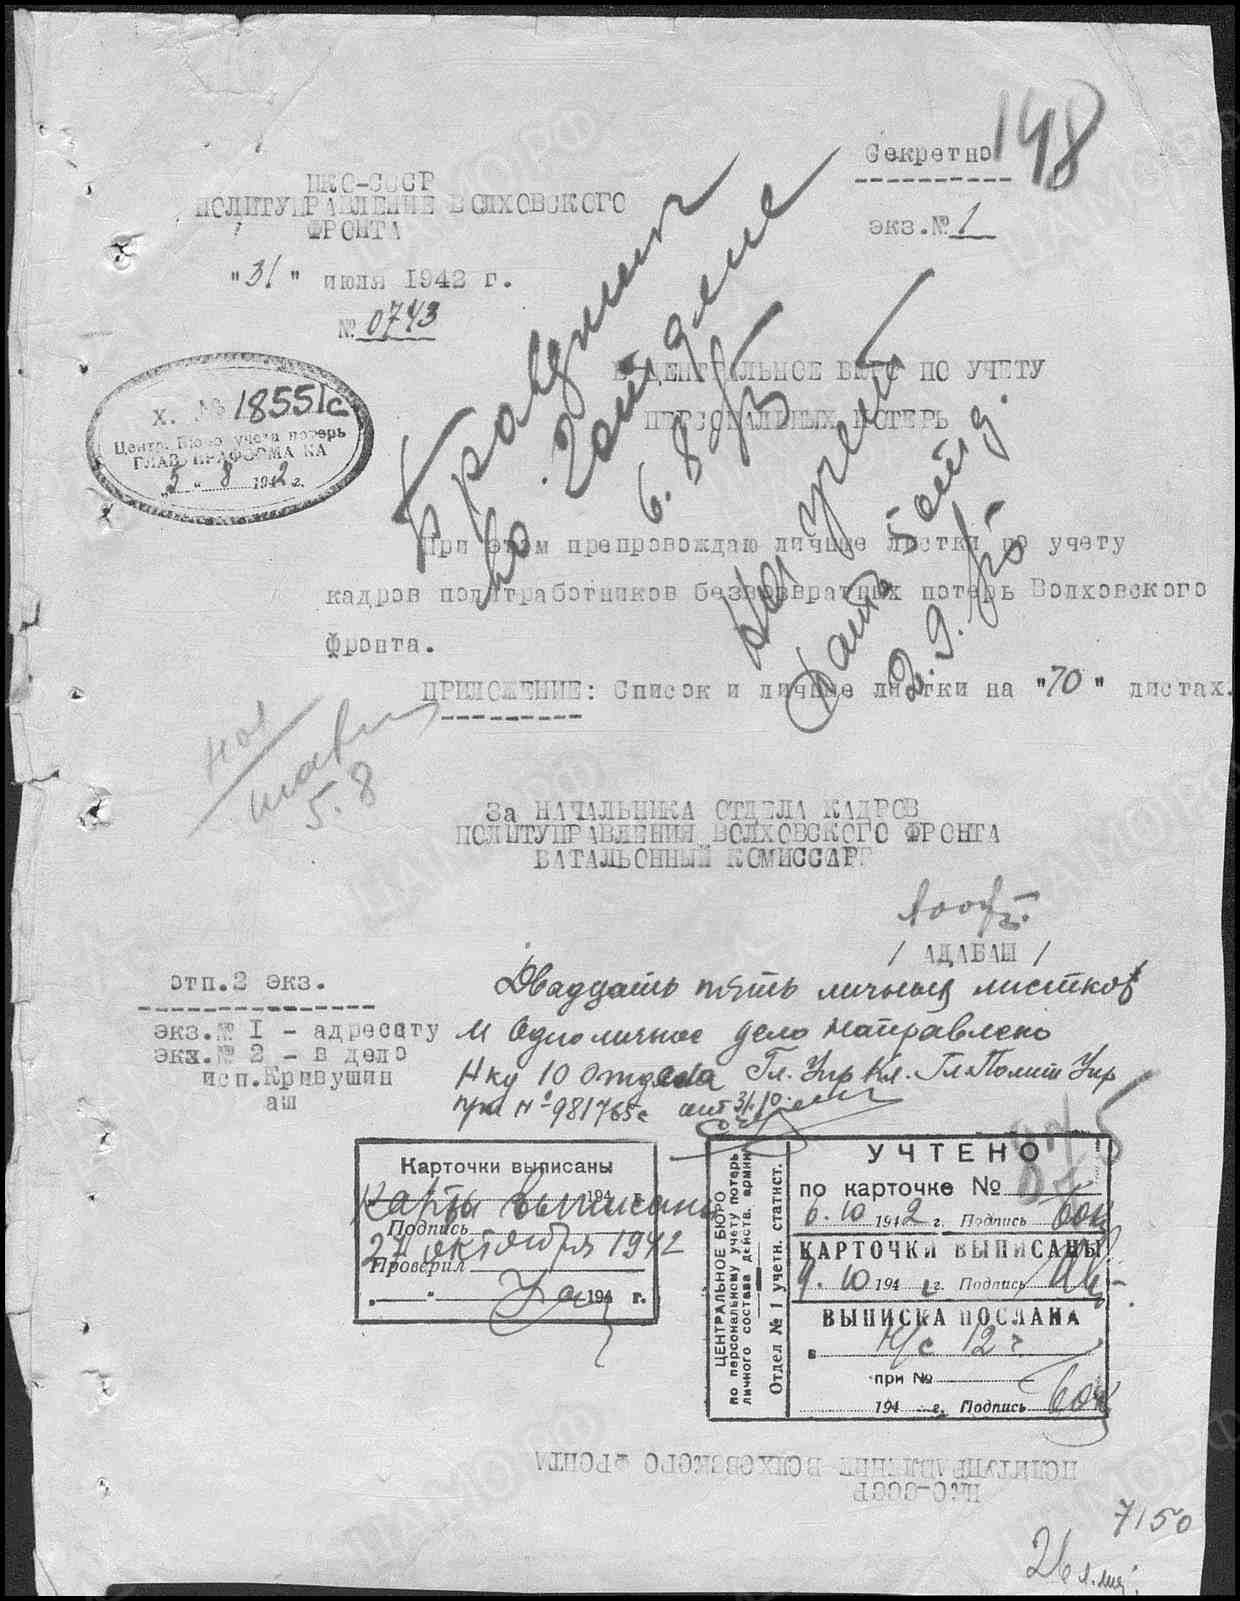 Секретно
198
НКО-СССР
ПОЛИТУПРАВЛЕНИЕ ВОЛХОВСКОГО
ФРОНТА
экз.№ 1
"31" июля 1942 г.
№ 0743
В ЦЕНТРАЛЬНОЕ БЮРО ПО УЧЕТУ
ПЕРСОНАЛЬНЫХ ПОТЕРЬ
Х. № 18551с
Центр. Бюро учета потерь
ГЛАВУПРАФОРМА КА
"5" 8 1942 г.
6.8
2.9.
При этом препровождаю личные листки по учету
кадров политработников безвозвратных потерь Волховского
Фронта.
ПРИЛОЖЕНИЕ: Список и личные листки на "70" листах.
5.8
За НАЧАЛЬНИКА ОТДЕЛА КАДРОВ
ПОЛИТУПРАВЛЕНИЯ ВОЛХОВСКОГО ФРОНТА
БАТАЛЬОННЫЙ КОМИССАР
/ АДАБАШ /
отп.2 экз.
экз.№ I - адресату
экз.№ 2 - в дело
исп.Кривушин
аш
Двадцать пять личных листков
и одно личное дело направлено
Нку 10 отдела Гл. Упр Кл. Гл.Полит Упр
при № 981765с от 31/10
Карточки выписаны
194 г.
карты выписаны
Подпись
27 октября 1942
Проверил
" " 194 г.
ЦЕНТРАЛЬНОЕ БЮРО
по персональному учету потерь
личного состава действ. армии
Отдел № 1 учетн. статист.
УЧТЕНО
по карточке №
6.10 1942 г. Подпись
КАРТОЧКИ ВЫПИСАНЫ
9.10 194 г. Подпись
ВЫПИСКА ПОСЛАНА
в н/с 12 г.
при №
194 г. Подпись
ПОЛИТУПРАВЛЕНИЕ ВОЛХОВСКОГО ФРОНТА
НКО-СССР
7150
ЦАМО.РФ